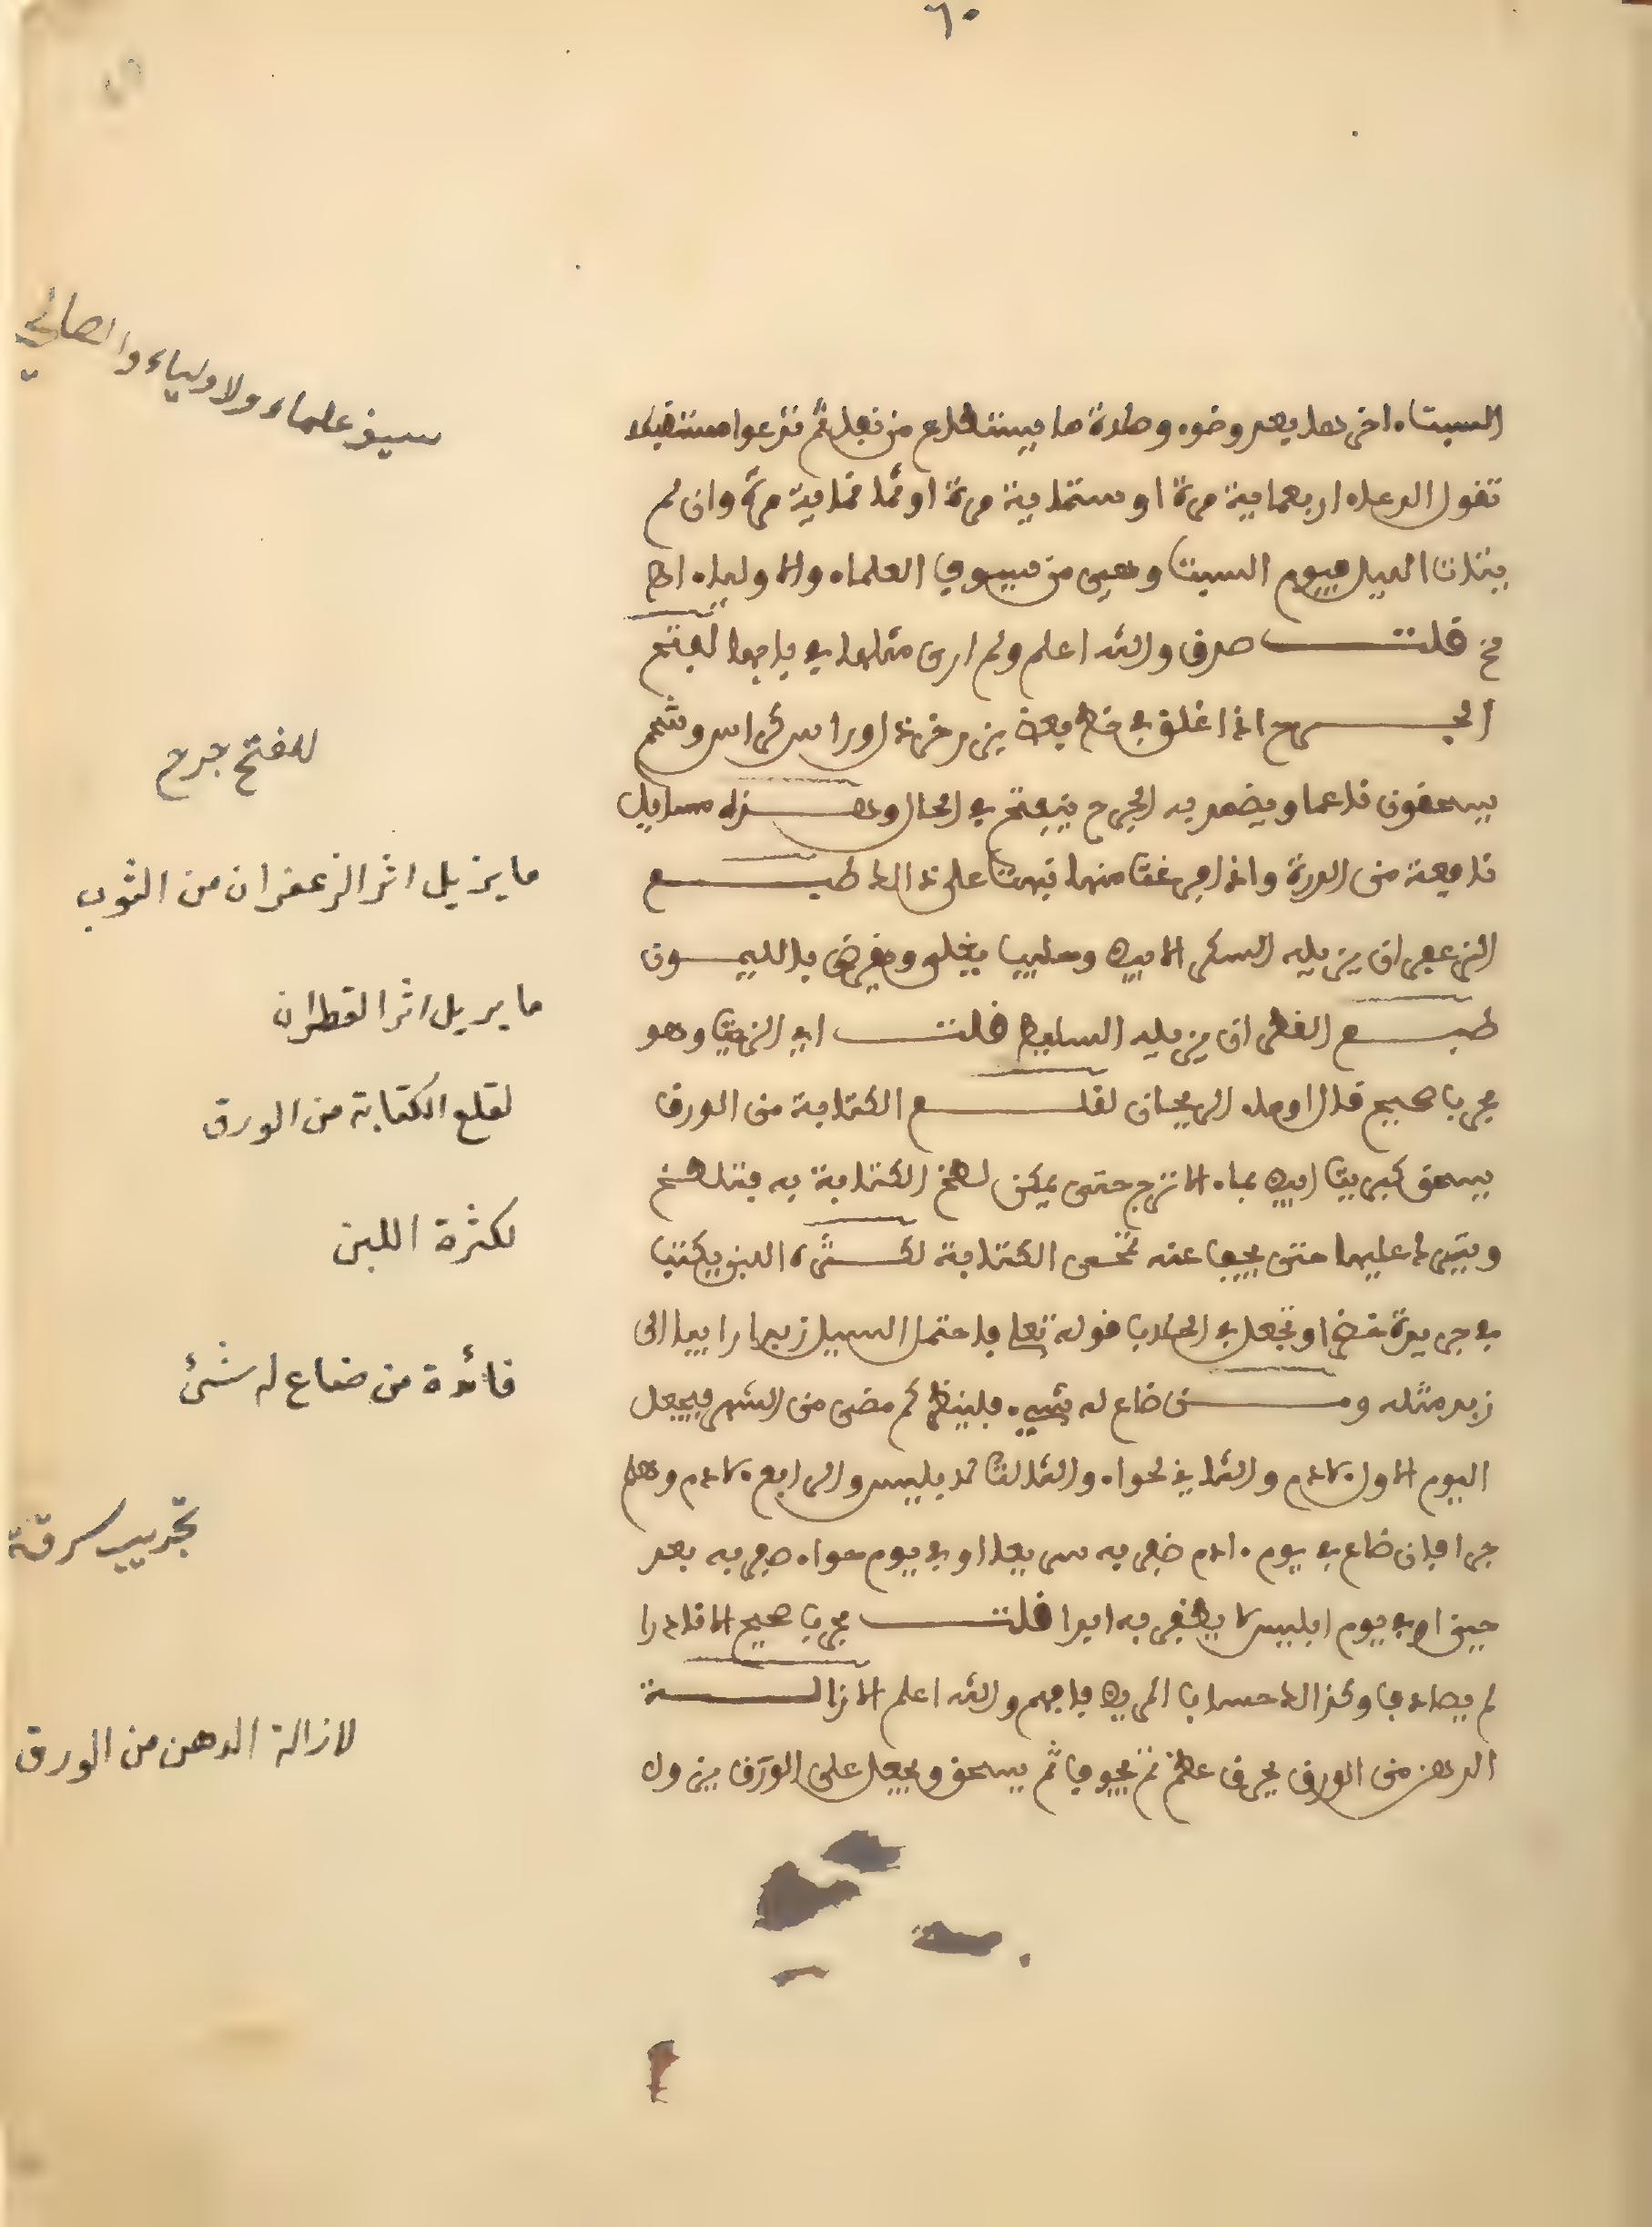 ٦٠
سيوف علماء ولاولياء والصالحين
السبت اخرها بعد وضوء وصلاة ما يستطاع من نفل ثم تدعوا مستقبلا
تقول الدعاء اربعماية مرة او ستماية مرة او ثمانماية مرة وان لم
يتات اليل فيوم السبت وهي من سيوف العلماء والاولياء اهـ
قلت صدق والله اعلم ولم ارى مثلها في بابها لفتح
الجرح اذا اغلق في خطر يؤخذ
يسحقون ناعما ويضمد به الجرح ينفتح في الحال وهذه مسايل
نافعة من الدرة واذا فرغت منها نبهت على ذالك طبع
الزعفران يزيله السكر الابيض وحليب يغلى ويقرض بالليمون
طبع القطران يزيله السليط قلت اي الزيت وهو
مجرب صحيح قال او ماء الريحان لقلع الكتابة من الورق
يسحق كبريت ابيض بماء الاترج حتى يمكن لطخ الكتابة به فتلطخ
ويترك عليها حتى يجف عنه تخفى الكتابة لكثرة اللبن يكتب
في جريدة وتجعل في الحلاب قوله تعلى فاحتمل السيل زبدا رابيا الى
زبد مثله ومن ضاع له شيء فلينظر كم مضى من الشهر فيجعل
اليوم الاول لادم والثاني لحواء والثالث لابليس والرابع لادم وهلم
جرا فان ضاع في يوم ءادم ظفر به سريعا او في يوم حواء ظفر به بعد
حين او في يوم ابليس لا يظفر به ابدا قلت مجرب صحيح الا نادرا
لم يصادف وكذالك حساب المريض فافهم والله اعلم لازالة
الدهن من الورق يحرق عظم ثم يسحق ويجعل على الورق يزول
للفتح جرح
ما يزيل اثر الزعفران من الثوب
ما يريل اثر القطران
لقلع الكتابة من الورق
لكثرة اللبن
فائدة من ضاع له شئ
تجريب سرقة
لازالة الدهن من الورق